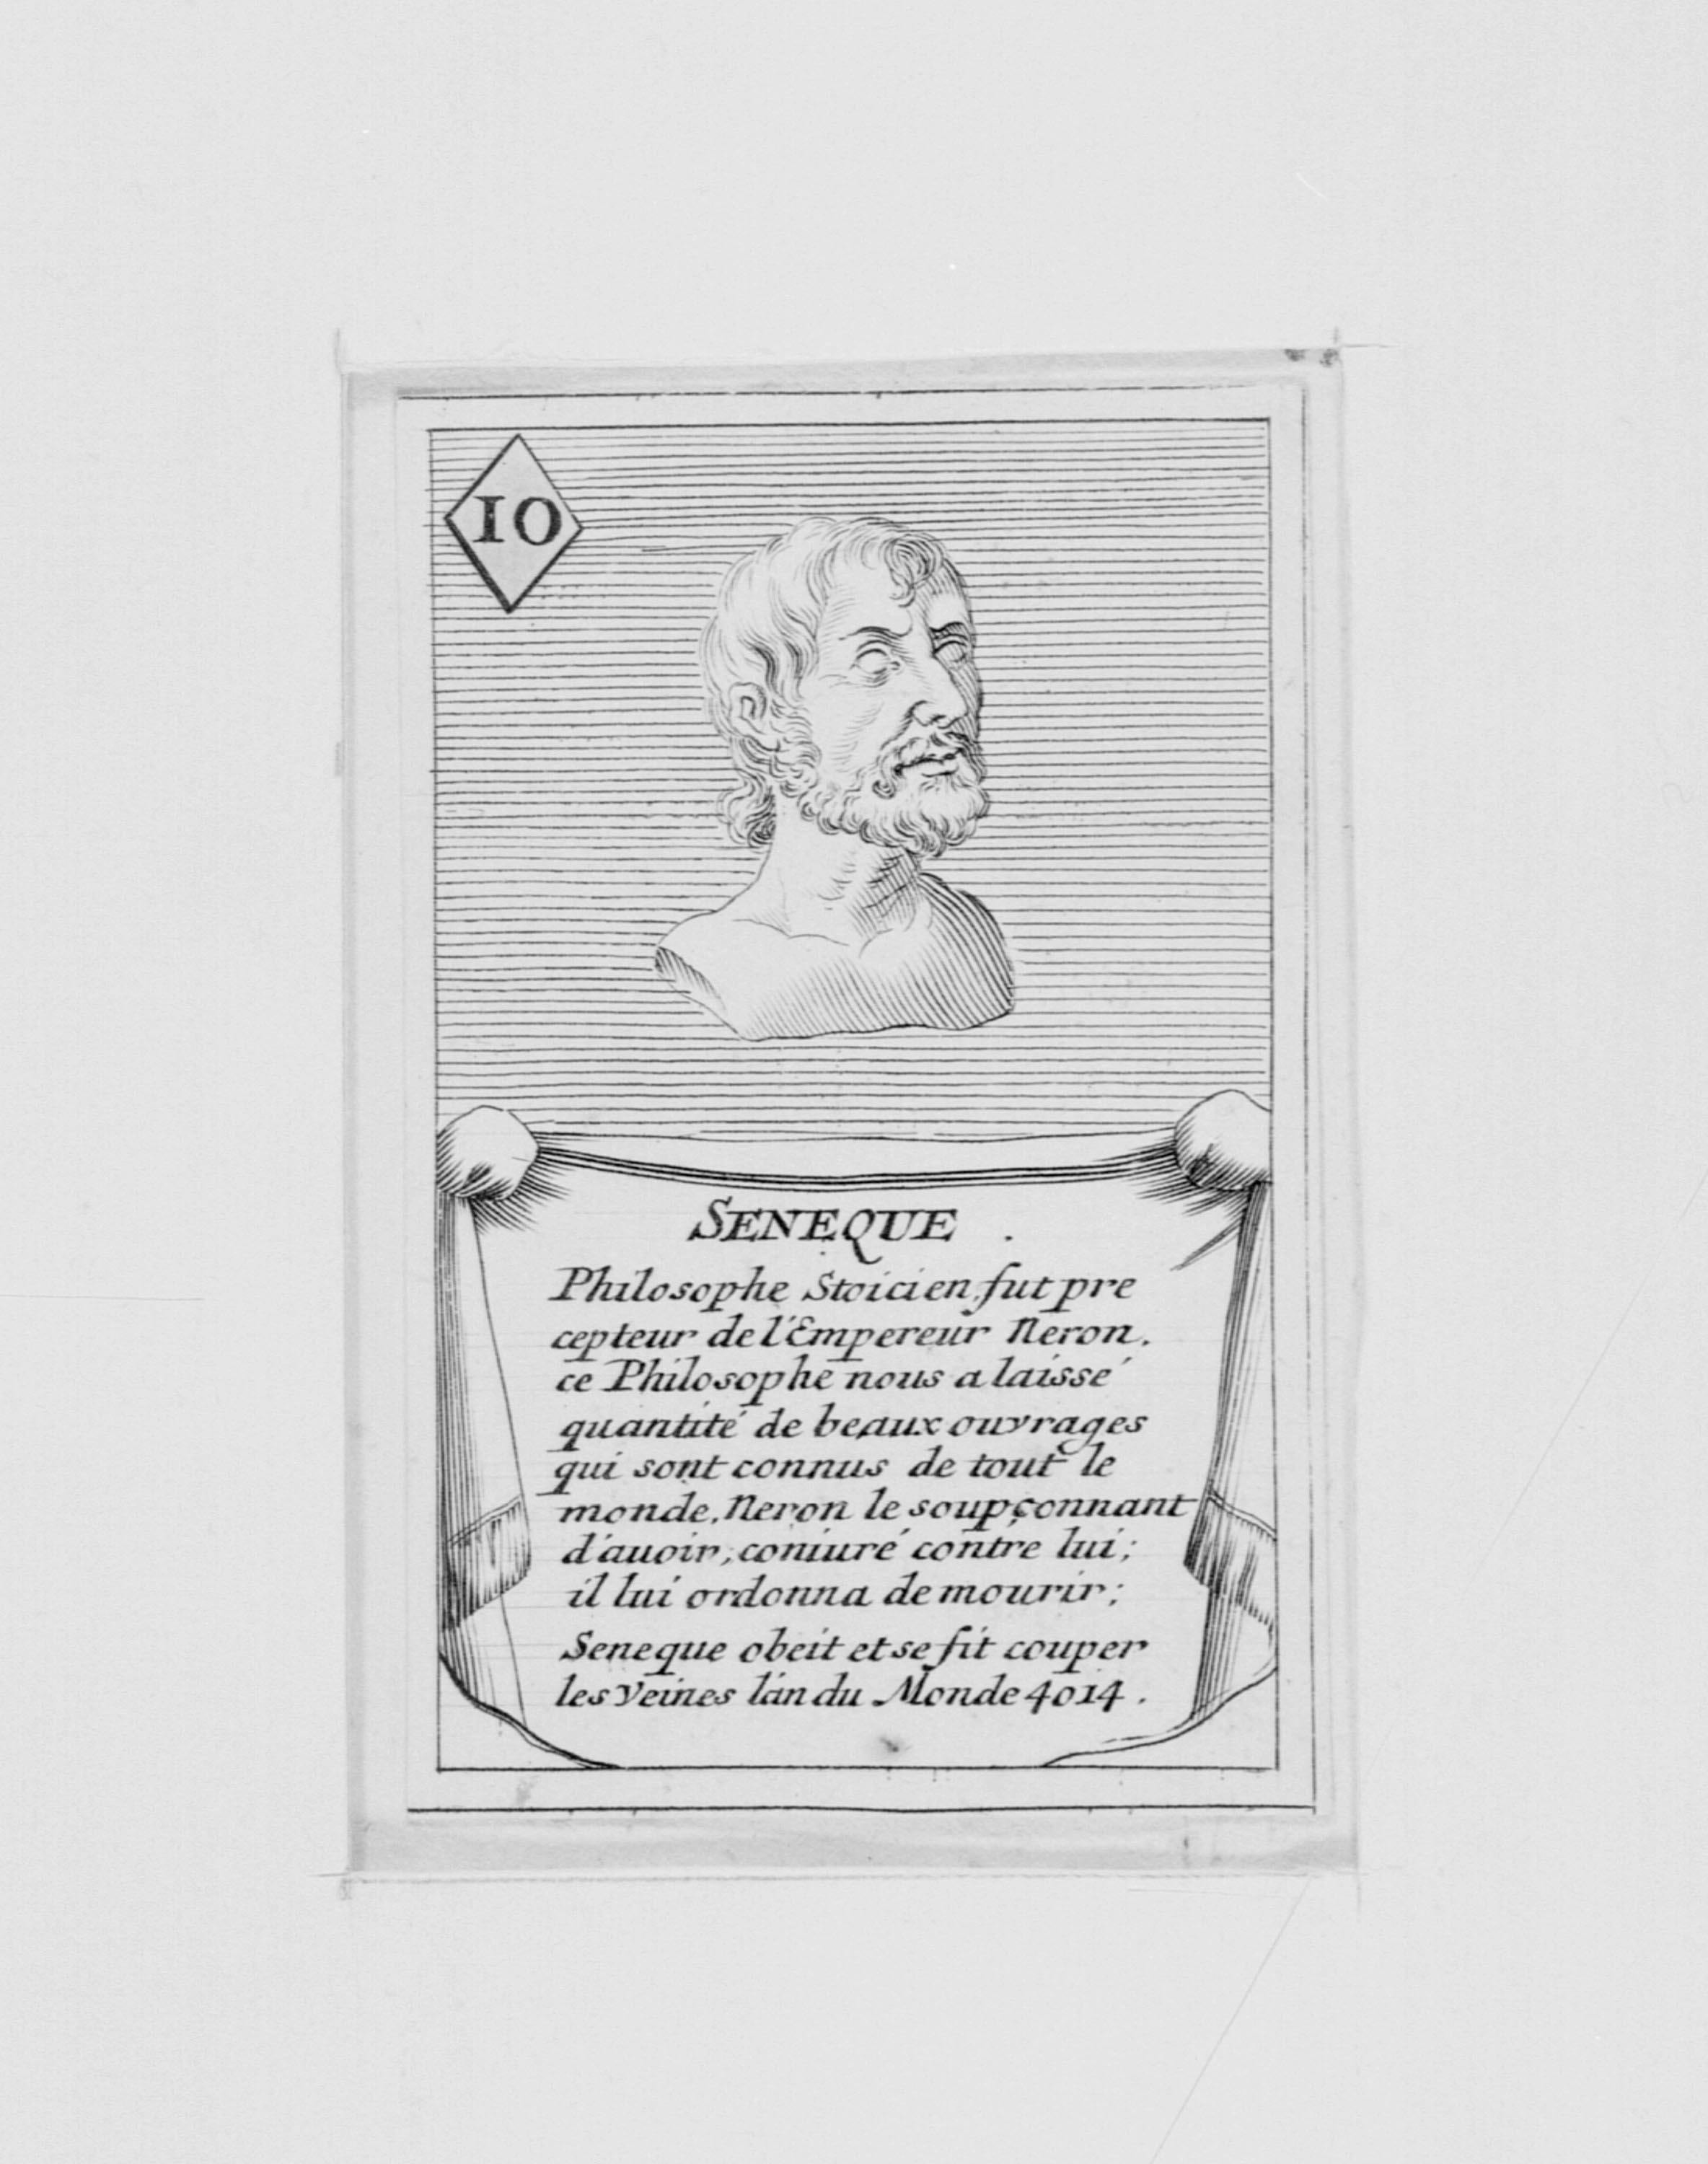 10
SENEQUE .
Philosophe Stoicien fut pre
cepteur de l'Empereur Neron.
ce Philosophe nous a laissé
quantité de beaux ouvrages
qui sont connus de tout le
monde. Neron le soupçonnant
d'auoir, coniuré contre lui;
il lui ordonna de mourir;
Seneque obeit et se fit couper
les veines l'an du Monde 4014.